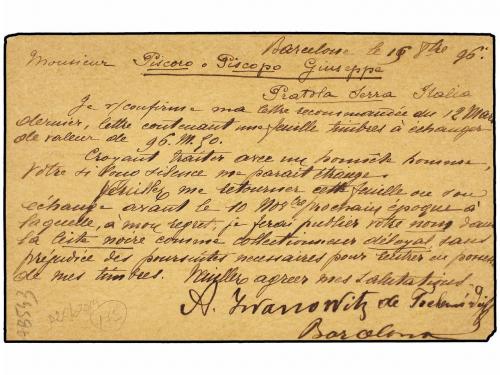 Barcelone le 15 8bre 96.
Monsieur Piscoro o Piscopo Giuseppe
Pratola Serra Italia
Je v/confirme ma lettre recommandée du 12 Mars
dernier, lettre contenant une feuille timbres à échanger
de valeur de 96. M. 50.
Croyant traiter avec un honnête homme,
votre si long silence me parait étrange.
Veuillez me retourner cette feuille ou son
échange avant le 10 9bre prochain époque à
laquelle, à mon regret, je ferai publier votre nom dans
la liste noire comme collectionneur déloyal, sans
préjudice des poursuites necessaires pour rentrer en
de mes timbres. Veuillez agréer mes salutations
A. Iwanowitz de
Barcelona